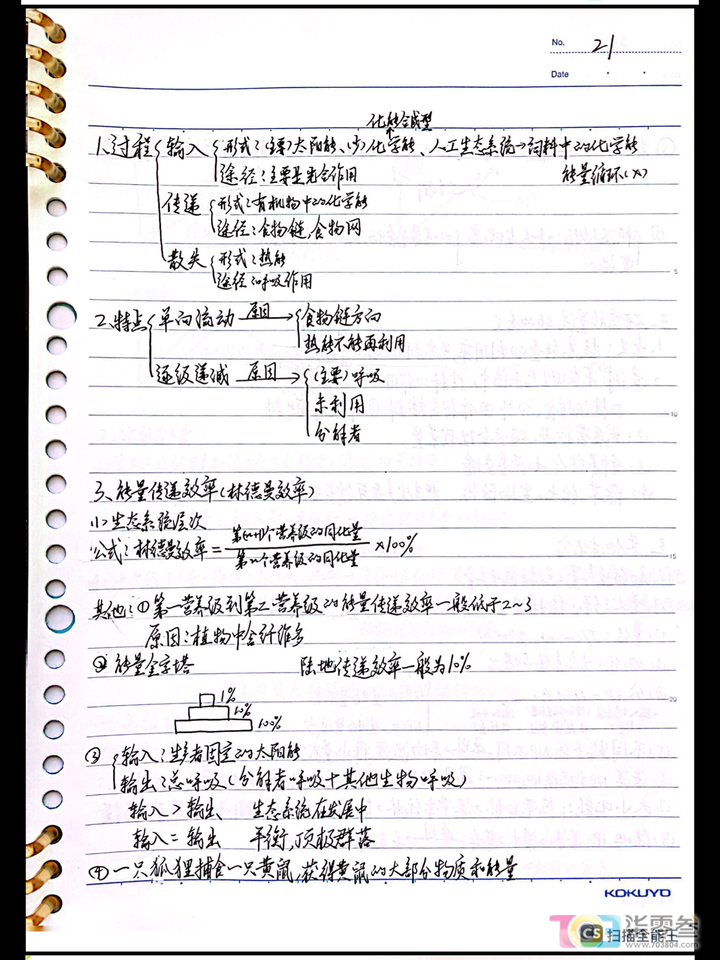 No. 21
Date
化能合成型
1.过程 输入 形式:(主要)太阳能、(少)化学能、人工生态系统→饲料中的化学能
途径:主要是光合作用 能量循环(×)
传递 形式:有机物中的化学能
途径:食物链、食物网
散失 形式:热能
途径:呼吸作用
2.特点 单向流动 原因→ 食物链方向
热能不能再利用
逐级递减 原因→ (主要)呼吸
未利用
分解者
3.能量传递效率(林德曼效率)
(1)生态系统层次
公式:林德曼效率=第(n+1)个营养级的同化量/第n个营养级的同化量×100%
其他:①第一营养级到第二营养级的能量传递效率一般低于2~3
原因:植物中含纤维多
②能量金字塔 陆地传递效率一般为10%
1%
10%
100%
③ 输入:生产者固定的太阳能
输出:总呼吸(分解者呼吸+其他生物呼吸)
输入>输出、 生态系统在发展中
输入=输出 平衡,顶极群落
④一只狐狸捕食一只黄鼠,获得黄鼠的大部分物质和能量
KOKUYO
CS 扫描全能王
www.703804.com
5
10
15
20